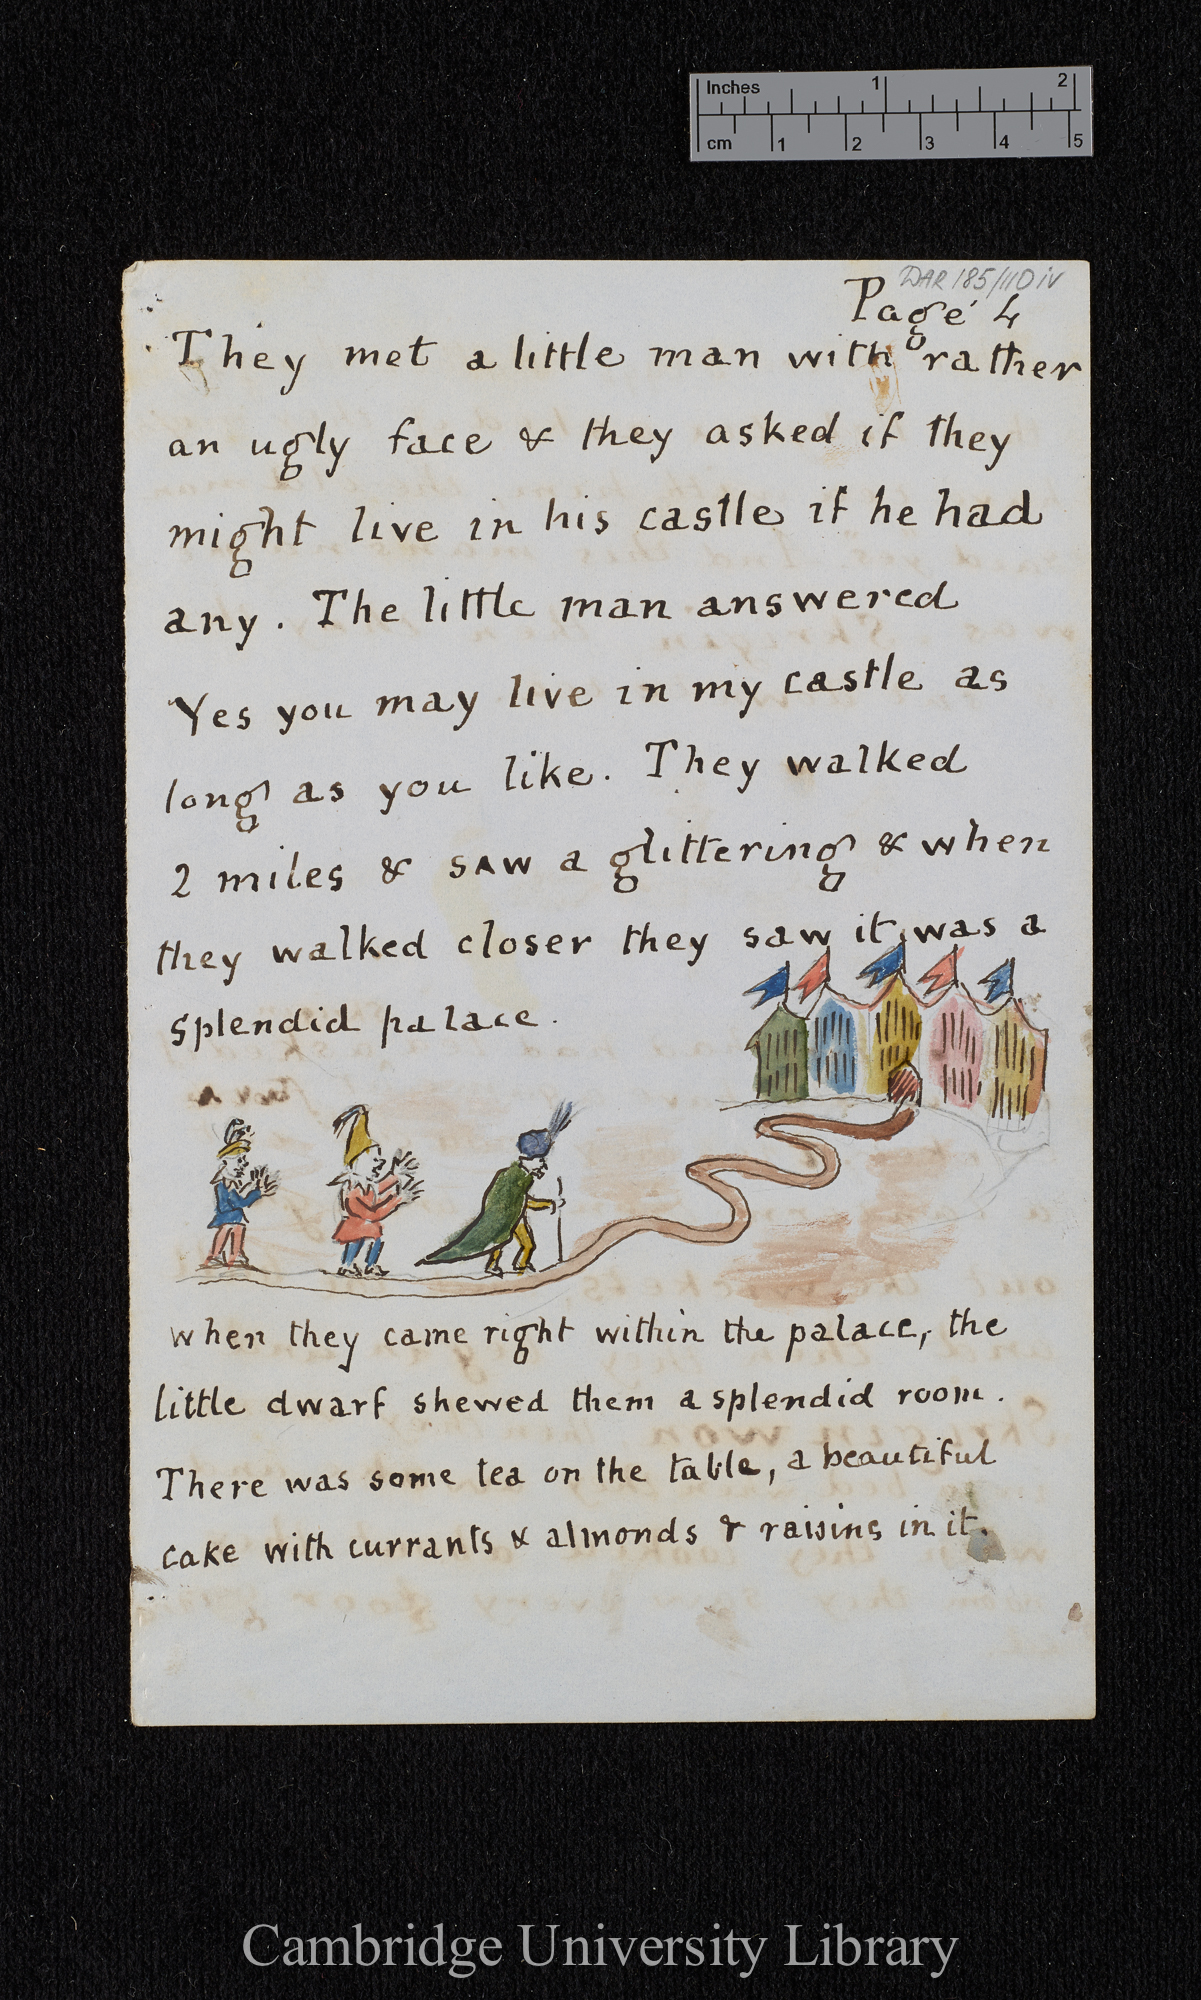 Inches 1 2
cm 1 2 3 4 5
DAR 185/110 iv
Page 4
They met a little man with rather
an ugly face & they asked if they
might live in his castle if he had
any. The little man answered
Yes you may live in my castle as
long as you like. They walked
2 miles & saw a glittering & when
they walked closer they saw it was a
splendid palace.
when they came right within the palace, the
little dwarf shewed them a splendid room.
There was some tea on the table, a beautiful
cake with currants & almonds & raisins in it.
Cambridge University Library